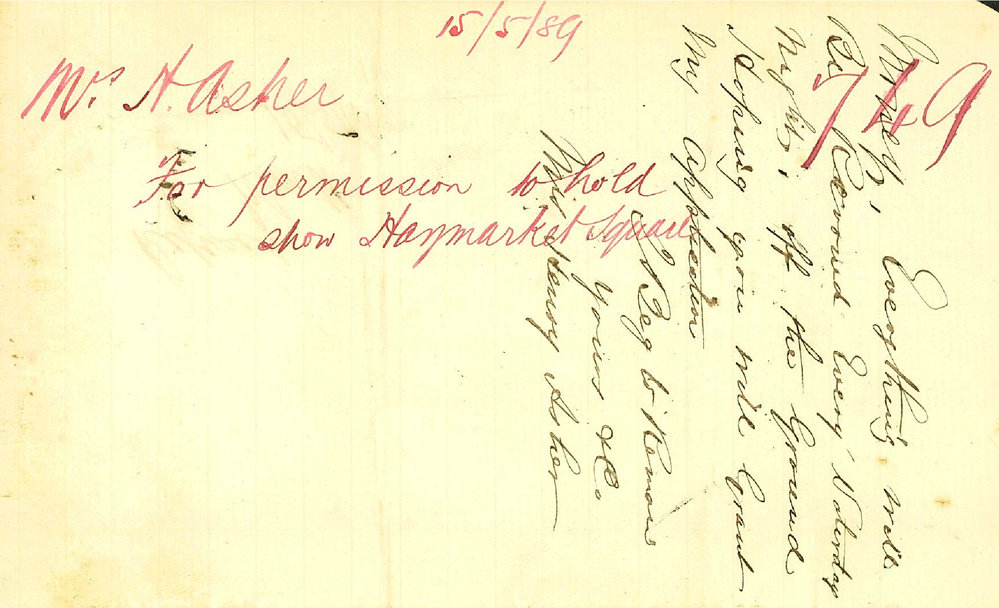 15/5/89
749
Mrs H. Asher
For permission to hold
show Haymarket Square
Myself, Everything will
Be Removed Every Saturday
Night, off the Ground
Hoping you will Grant
My Aplection
I Beg to Remain
Yours &c
Mrs Henry Asher